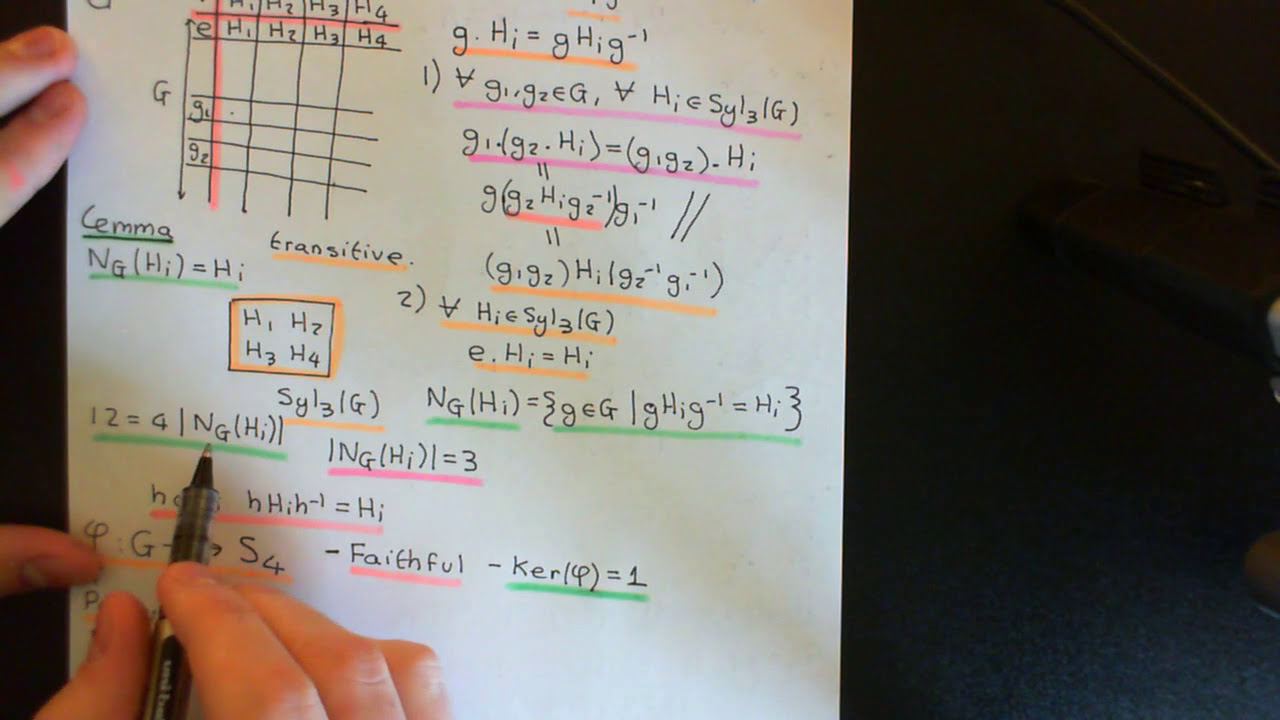 H₁ H₂ H₃ H₄
e H₁ H₂ H₃ H₄
G
g₁
g₂
g. Hᵢ = gHᵢg⁻¹
1) ∀ g₁,g₂∈G, ∀ Hᵢ∈Syl₃(G)
g₁.(g₂.Hᵢ)=(g₁g₂).Hᵢ
=
g(g₂Hᵢg₂⁻¹)g₁⁻¹ //
=
(g₁g₂)Hᵢ(g₂⁻¹g₁⁻¹)
Lemma
transitive.
N_G(Hᵢ)=Hᵢ
2) ∀ Hᵢ∈Syl₃(G)
e.Hᵢ=Hᵢ
H₁ H₂
H₃ H₄
Syl₃(G)
N_G(Hᵢ)={g∈G | gHᵢg⁻¹=Hᵢ}
12=4|N_G(Hᵢ)|
|N_G(Hᵢ)|=3
h hHᵢh⁻¹=Hᵢ
φ:G → S₄ -Faithful -Ker(φ)=1